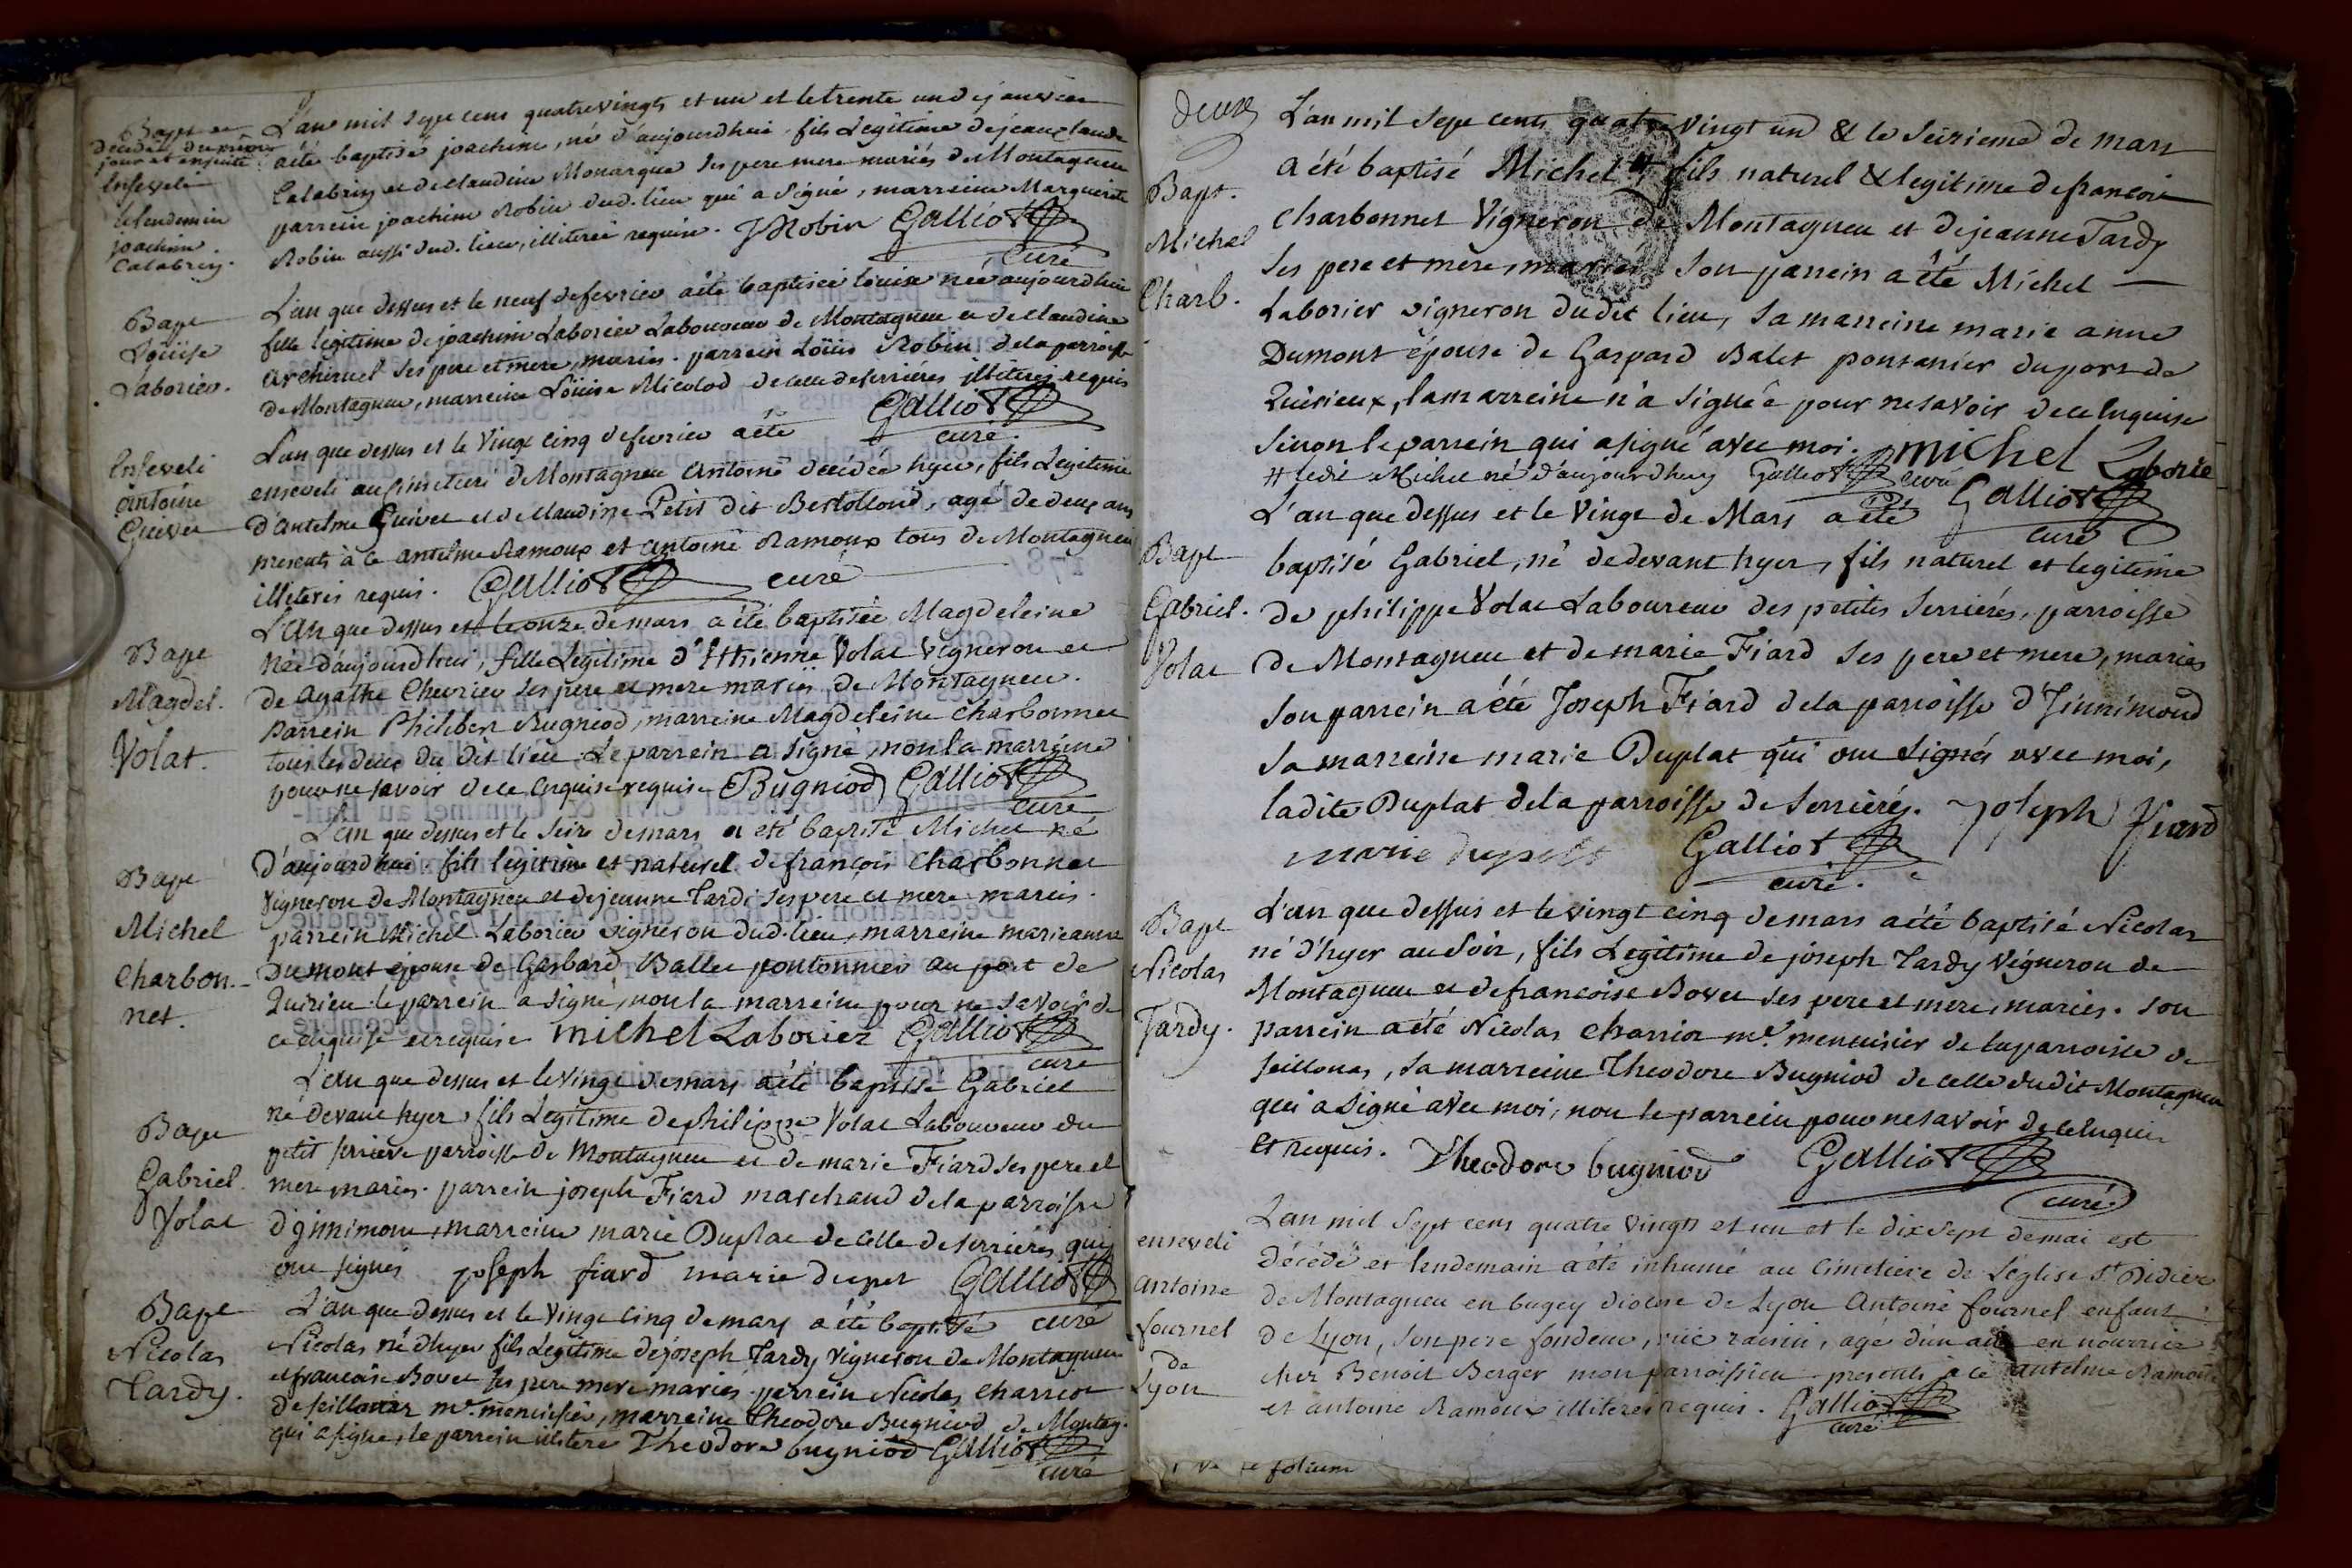 Bapt et
decedé du même
jour et ensuite
Enseveli
le lendemin
joachim
Calabrin.
L'an mil sept cens quatrevingts et un et le trente un de janvier
a été baptisé joachim, né d'aujourdhui, fils Legitime de jean claude
Calabrin et de claudine Monarque ses pere mere mariés de Montagneu
parrein joachim Robin dud. lieu qui a signé, marreine Marguerite
Robin aussi dud. lieu, illiterée requise. J Robin Galliot
curé
Bapt
Loüise
Laborier.
L'an que dessus et le neuf de fevrier a été baptisée loüise née aujourdhui
fille legitime de joachim Laborier Laboureur de Montagneu et de claudine
ses pere et mere, mariés. parrein Loüis Robin de la parroisse
de Montagneu, marreine Loüise Micolod de celle de serrieres illiterés requis
Galliot
curé.
Enseveli
antoine
Guivet
L'an que dessus et le vingt cinq de fevrier a été
enseveli au cimetiere de Montagneu antoine decédé hyer, fils Legitime
d'antelme Guivet et de claudine Petit dit Bertolloud, agé de deux ans
presents à ce antelme Ramoux et antoine Ramoux tous de Montagneu
illiterés requis. Galliot curé
Bapt
Magdel.
Volat.
L'an que dessus et le onze de mars a été baptisée Magdeleine
Née d'aujourdhui, fille Legitime d'Ethienne Volat Vigneron et
de agathe Chevrier ses pere et mere mariés de Montagneu.
parrein Philibert Bugniod, marreine Magdeleine charbonnet
tous les deux du dit lieu. Le parrein a signé, non la marreine
pour ne savoir de ce enquise requise Bugniod Galliot
curé
Bapt
Michel
Charbon-
net.
L'an que dessus et le seize de mars a été baptisé Michel né
d'aujourdhui fils legitime et naturel de françois Charbonnet
vigneron de Montagneu et de jeanne Tardi ses pere et mere mariés.
parrein Michel Laborier vigneron dud. lieu, marreine marie anne
Dumont épouse de Gasbard Ballet pontonnier au port de
Quirieu. le parrein a signé, non la marreine pour ne savoir de
ce enquise et requise michel Laboriez Galliot
curé
Bapt
Gabriel
Volat
L'an que dessus et le vingt de mars a été baptisé Gabriel
né devant hyer, fils Legitime de philippe Volat Laboureur du
petit serriere parroisse de Montagneu et de marie Fiard ses pere et
mere mariés. parrein joseph Fiard marchand de la parroisse
d'ynnimont, marreine marie Duplat de celle de serriéres qui
ont signés joseph fiard marie duplat Galliot
curé
Bapt
Nicolas
Tardy.
L'an que dessus et le vingt cinq de mars a été baptisé
Nicolas né d'hyer fils Legitime de joseph Tardy vigneron de Montagneu
et francoise Bovet ses pere mere mariés. parrein Nicolas Charriot
de seillonas m.e menuisier, marreine Theodore Bugniod de Montag.
qui a signé, le parrein illitere Theodore bugniod Galliot
curé
deux
Bapt.
Michel
Charb.
L'an mil sept cents quatre vingt un & le seizieme de mars
a été baptisé Michel #, fils naturel & legitime de francois
Charbonnet Vigneron de Montagneu et de jeanne Tardy
ses pere et mere, mariés. Son parrein a été Michel
Laborier vigneron dudit lieu, sa marreine marie anne
Dumont épouse de Gaspard Balet pontanier du port de
Quirieux, la marreine n'a signée pour ne savoir de ce enquise
sinon le parrein qui a signé avec moi. michel Laborie
# ledit Michel né d'aujourdhuy Galliot curé
Galliot
curé
Bapt
Gabriel.
Volat
L'an que dessus et le vingt de Mars a été
baptisé Gabriel, né de devant hyer, fils naturel et legitime
de philippe Volat Laboureur des petites Serriéres, parroisse
de Montagneu et de marie Fiard ses pere et mere, mariés
Son parrein a été Joseph Fiard de la parroisse d'Jinnimond
sa marreine marie Duplat qui ont signés avec moi,
ladite Duplat de la parroisse de Serriéres. joseph fiard
marie duplat Galliot
curé.
Bapt
Nicolas
Tardy.
L'an que dessus et le vingt cinq de mars a été baptisé Nicolas
né d'hyer au soir, fils Legitime de joseph Tardy Vigneron de
Montagneu et de francoise Bovet ses pere et mere, mariés. son
parrein a été Nicolas Charriot m.e menuisier de la parroisse de
seillonas, sa marreine Theodore Bugniod de celle dudit Montagneu
qui a signé avec moi, non le parrein pour ne savoir de ce enquis
et requis. Theodore bugniod Galliot
curé
enseveli
antoine
fournel
de
Lyon
L'an mil sept cens quatre vingts et un et le dix sept de mai est
décédé et lendemain a été inhumé au cimetiere de L'église St Didier
de Montagneu en bugey diocese de Lyon Antoine fournel enfant
de Lyon, son pere fondeur, rüe raisin, agé d'un an en nourrice
chez Benoit Berger mon parroissien presents à ce antelme Ramoux
et antoine Ramoux illiterés requis. Galliot
curé
folium